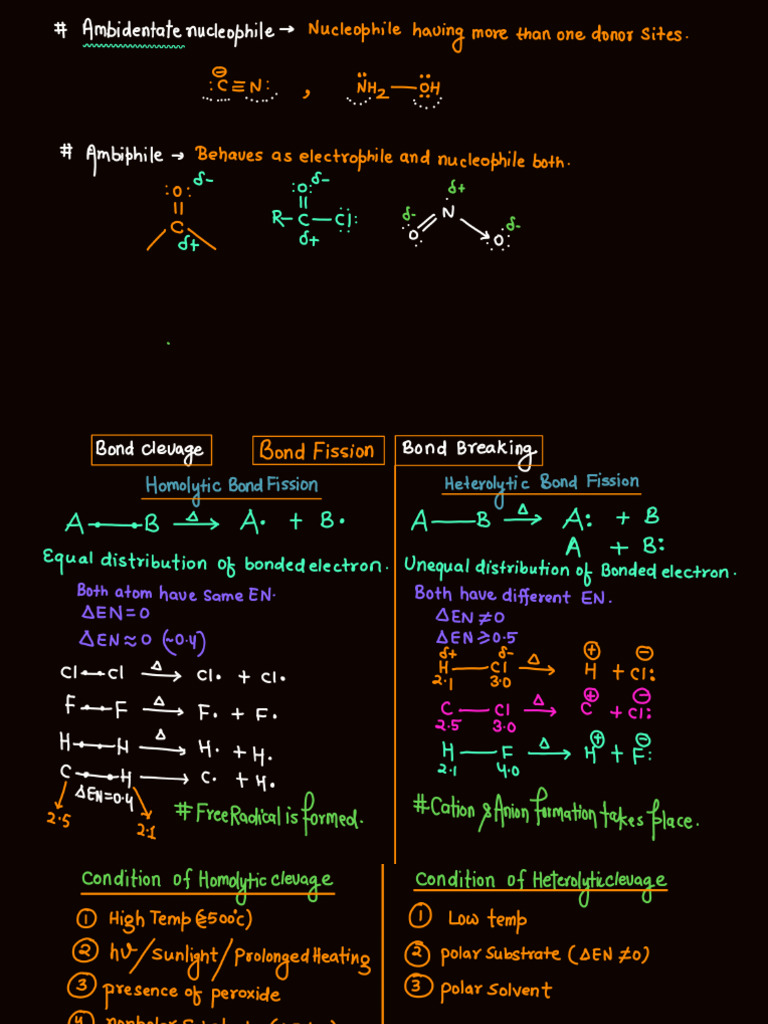 # Ambidentate nucleophile → Nucleophile having more than one donor sites.
⊖
:C≡N: , N̈H2—ÖH
# Ambiphile → Behaves as electrophile and nucleophile both.
:O: δ-
||
C
δ+
:O: δ-
||
R—C—Cl:
δ+
δ+
δ- N δ-
O O
Bond Clevage
Bond Fission
Bond Breaking
Homolytic Bond Fission
A—B Δ→ A• + B•
Equal distribution of bonded electron.
Both atom have same EN.
ΔEN=0
ΔEN≈0 (~0.4)
Cl—Cl Δ→ Cl• + Cl•
F—F Δ→ F• + F•
H—H Δ→ H• + H•
C—H → C• + H•
ΔEN=0.4
2.5 2.1
# Free Radical is formed.
Heterolytic Bond Fission
A—B Δ→ A: + B
A + B:
Unequal distribution of Bonded electron.
Both have different EN.
ΔEN≠0
ΔEN≥0.5
δ+ δ- ⊕ ⊖
H—Cl Δ→ H + Cl:
2.1 3.0
⊕ ⊖
C—Cl Δ→ C + Cl:
2.5 3.0
⊕ ⊖
H—F Δ→ H + F:
2.1 4.0
# Cation & Anion formation takes place.
Condition of Homolytic clevage
① High Temp (≥500°C)
② hν/Sunlight/Prolonged Heating
③ presence of peroxide
④ nonpolar
Condition of Heterolytic clevage
① Low temp
② polar Substrate (ΔEN≠0)
③ polar Solvent